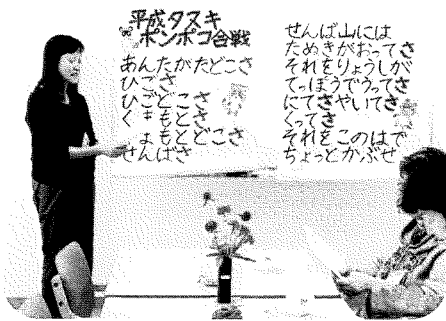 平成タヌキ
ポンポコ合戦
あんたがたどこさ
ひごさ
ひごどこさ
くまもとさ
まもとどこさ
せんばさ
せんば山には
たぬきがおってさ
それをりょうしが
てっぽうでうってさ
にてさやいてさ
くってさ
それをこのはで
ちょっとかぶせ